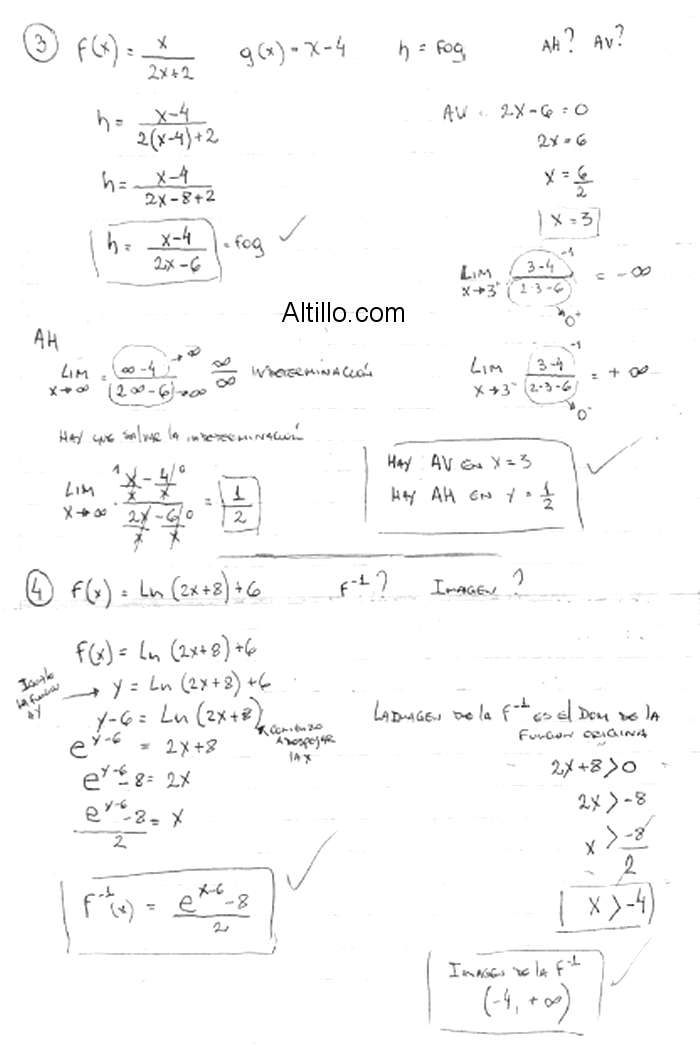 ③ f(x) = x/(2x+2)   g(x) = x-4   h = fog   AH? AV?
h = (x-4)/(2(x-4)+2)
h = (x-4)/(2x-8+2)
h = (x-4)/(2x-6) = fog ✓
AV. 2x-6=0
2x=6
x = 6/2
x = 3
Lim x→3⁺ (3-4)/(2·3-6) = -∞
-1
0⁺
Altillo.com
AH
Lim x→∞ = (∞-4)/(2∞-6) →∞ →∞ ∞/∞ INDETERMINACIÓN
Lim x→3⁻ (3-4)/(2·3-6) = +∞
-1
0⁻
HAY QUE SALVAR LA INDETERMINACIÓN
Lim x→∞ (x/x - 4/x)/(2x/x - 6/x) = 1/2
1 0
0
HAY AV EN x=3
HAY AH EN y = 1/2 ✓
④ f(x) = Ln (2x+8)+6   F⁻¹?   IMAGEN?
f(x) = Ln (2x+8)+6
→ y = Ln (2x+8)+6
y-6 = Ln (2x+8)
COMIENZO A DESPEJAR LA X
e^(y-6) = 2x+8
e^(y-6) - 8 = 2x
(e^(y-6) - 8)/2 = x
F⁻¹(x) = (e^(x-6) - 8)/2 ✓
LA IMAGEN DE LA F⁻¹ ES El DOM DE LA
FUNCION ORIGINA
2x+8>0
2x>-8
x > -8/2
x > -4
IMAGEN DE LA F⁻¹
(-4, +∞) ✓